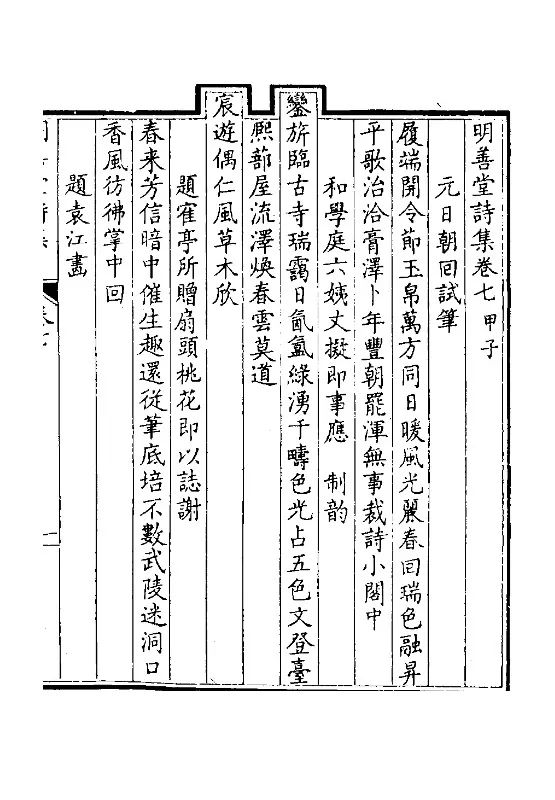 明善堂詩集卷七甲子
元日朝回試筆
履端開令節玉帛萬方同日暖風光麗春回瑞色融昇
平歌治洽膏澤卜年豐朝罷渾無事裁詩小閣中
和學庭六姨丈擬即事應　制韵
鑾旂臨古寺瑞靄日氤氳綠湧千疇色光占五色文登臺
熙蔀屋流澤煥春雲莫道
宸遊偶仁風草木欣
題寉亭所贈扇頭桃花即以誌謝
春来芳信暗中催生趣還從筆底培不數武陵迷洞口
香風彷彿掌中回
題袁江畫
卷七
一